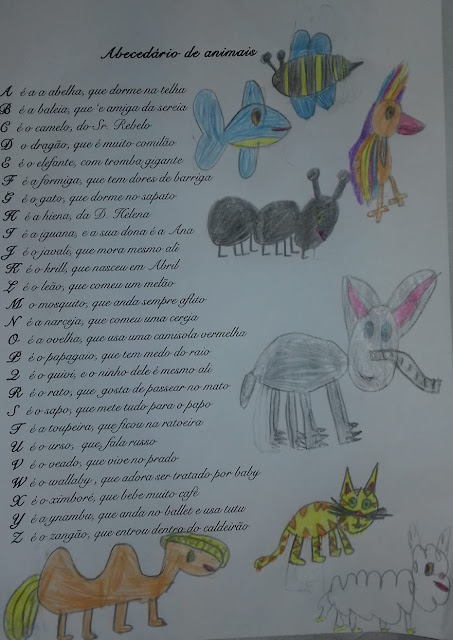 Abecedário de animais
A é a a abelha, que dorme na telha
B é a baleia, que 'e amiga da sereia
C é o camelo, do Sr. Rebelo
D o dragão, que é muito comilão
E é o elefante, com tromba gigante
F é a formiga, que tem dores de barriga
G é o gato, que dorme no sapato
H é a hiena, da D. Helena
I é a iguana, e a sua dona é a Ana
J é o javali, que mora mesmo ali
K é o krill, que nasceu em Abril
L é o leão, que comeu um melão
M o mosquito, que anda sempre aflito
N é a narceja, que comeu uma cereja
O é a ovelha, que usa uma camisola vermelha
P é o papagaio, que tem medo do raio
Q é o quivi, e o ninho dele é mesmo ali
R é o rato, que gosta de passear no mato
S é o sapo, que mete tudo para o papo
T é a toupeira, que ficou na ratoeira
U é o urso, que, fala russo
V é o veado, que vive no prado
W é o wallaby, que adora ser tratado por baby
X é o ximboré, que bebe muito café
Y é a ynambu, que anda no ballet e usa tutu
Z é o zangão, que entrou dentro do caldeirão